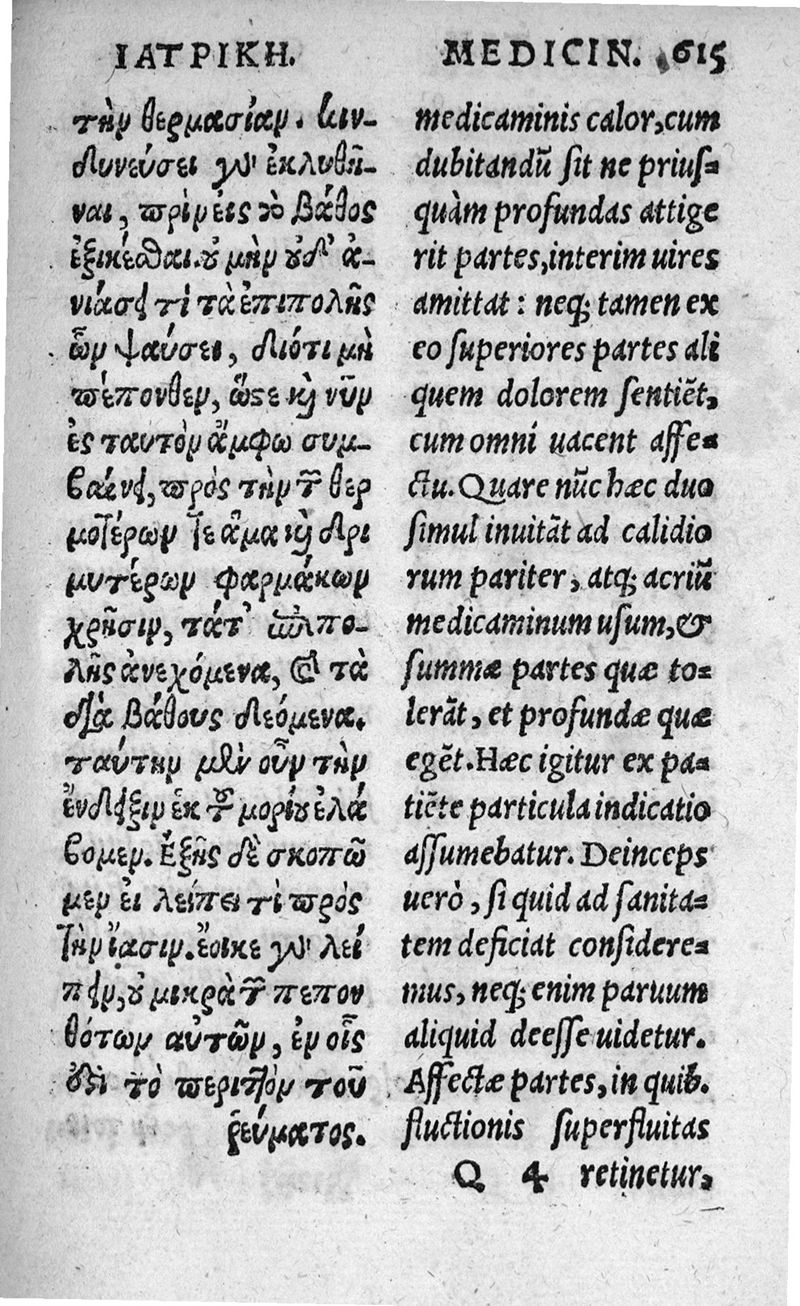 ΙΑΤΡΙΚΗ.
τὴν θερμασίαν. κιν-
δυνεύσει γὰρ ἐκλυθῆ-
ναι, πρὶν εἰς τὸ βάθος
ἐξικέσθαι. οὐ μὴν οὐδ' ἀ-
νιάσει τὶ τὰ ἐπιπολῆς
ὧν ψαύσει, διότι μὴ
πέπονθεν, ὥστε καὶ νῦν
ἐς ταυτὸν ἄμφω συμ-
βαίνει, πρὸς τὴν τῶν θερ
μοτέρων τε ἅμα καὶ δρι
μυτέρων φαρμάκων
χρῆσιν, τάτ' ἐπιπο-
λῆς ἀνεχόμενα, καὶ τὰ
διὰ βάθους δεόμενα.
ταύτην μὲν οὖν τὴν
ἔνδειξιν ἐκ τοῦ μορίου ἐλά
βομεν. Εξῆς δὲ σκοπῶ
μεν εἰ λείπει τὶ πρὸς
τὴν ἴασιν. ἔοικε γὰρ λεί
πειν, οὐ μικρὰ τῶν πεπον
θότων αὐτῶν, ἐν οἷς
ἐστι τὸ περιττὸν τοῦ
ῥεύματος.
MEDICIN. 615
medicaminis calor, cum
dubitandũ sit ne prius-
quàm profundas attige
rit partes, interim uires
amittat: neq; tamen ex
eo superiores partes ali
quem dolorem sentiẽt,
cum omni uacent affe-
ctu. Quare nũc hæc duo
simul inuitãt ad calidio
rum pariter, atq; acriũ
medicaminum usum, &
summæ partes quæ to-
lerãt, et profundæ quæ
egẽt. Hæc igitur ex pa-
tiẽte particula indicatio
assumebatur. Deinceps
uerò, si quid ad sanita-
tem deficiat considere-
mus, neq; enim paruum
aliquid deesse uidetur.
Affectæ partes, in quib.
fluctionis superfluitas
Q 4 retinetur,